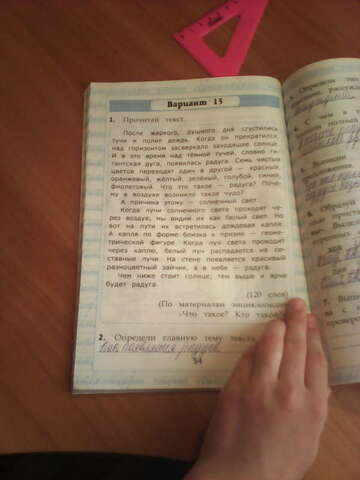 Вариант 15
1. Прочитай текст.
После жаркого, душного дня сгустились
тучи и полил дождь. Когда он прекратился,
над горизонтом засверкало заходящее солнце.
И в это время над тёмной тучей, словно ги-
гантская дуга, появилась радуга. Семь чистых
цветов переходят один в другой — красный,
оранжевый, жёлтый, зелёный, голубой, синий,
фиолетовый. Что это такое — радуга? Поче-
му в воздухе возникло такое чудо?
А причина этому — солнечный свет.
Когда лучи солнечного света проходят че-
рез воздух, мы видим их как белый свет. Но
вот на пути их встретилась дождевая капля.
А капля по форме близка к призме — геоме-
трической фигуре. Когда луч света проходит
через каплю, белый луч распадается на со-
ставные лучи. На стене появляется красивый
разноцветный зайчик, а в небе — радуга.
Чем ниже стоит солнце, тем выше и ярче
будет радуга.
(120 слов)
(По материалам энциклопедии
«Что такое? Кто такой?»
2. Определи главную тему текста
Как появляется радуга
54